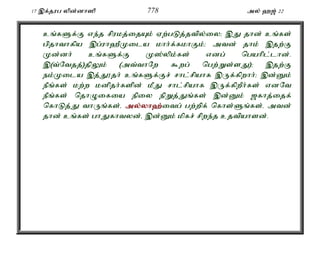 17 இக்தரப லின்னாஸி 778 அல் ஹஜ் 22
உங்களுக்கு எந்த சிரமத்தையும் ஏற்படுத்தவில்லை; இது தான் உங்கள்
பிதாவாகிய இப்ராஹீமுடைய மார்க்கமாகும்; அவன் தாம் இதற்கு
முன்னர் உங்களுக்கு முஸ்லிம்கள் எனப் பெயரிட்டான்.
இ(வ்வேதத்)திலும் (அவ்வாறே கூறப் பெற்றுள்ளது); இதற்கு
நம்முடைய இத்தூதர் உங்களுக்குச் சாட்சியாக இருக்கிறார்; இன்னும்
நீங்கள் மற்ற மனிதர்களின் மீது சாட்சியாக இருக்கிறீர்கள் எனவே
நீங்கள் தொழுகையை நிலை நிறுத்துங்கள் இன்னும் ஜகாத்தைக்
கொடுத்து வாருங்கள், அல்லாஹ்வைப் பற்றிக் கொள்ளுங்கள். அவன்
தான் உங்கள் பாதுகாவலன், இன்னும் மிகச் சிறந்த உதவியாளன்.